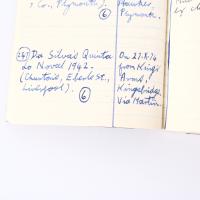 , Co, Plymouth).
⑥
Plymouth.
(267) Da Silva's Quinta
do Noval 1942.
(Chustons, Eberle St.,
Liverpool).
⑥
On 27.8.74
from King's
Arms,
Kingsbridge,
Via Martin.